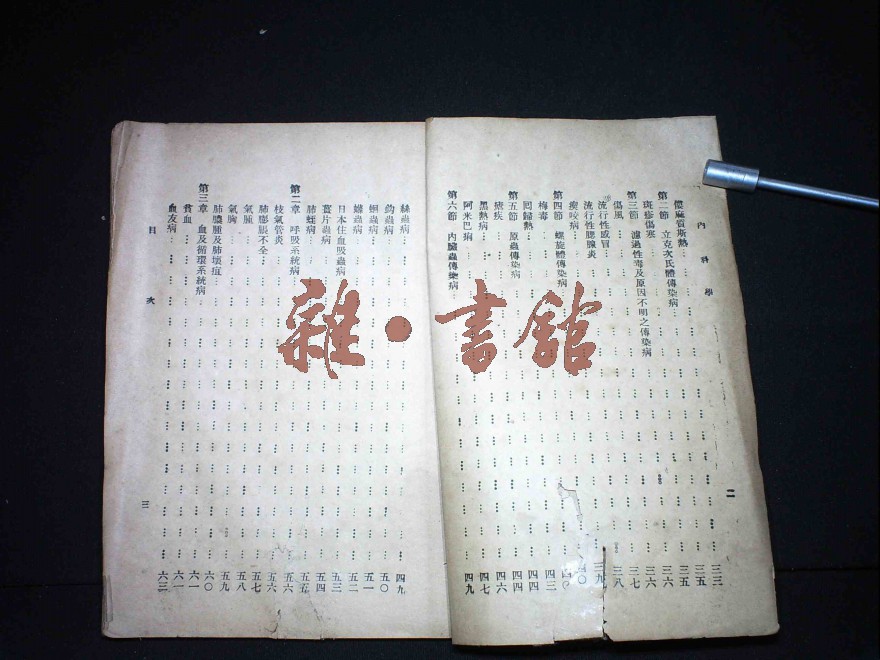 內科學
二
僂麻質斯熱……三三
第二節 立克次氏體傳染病……三五
斑疹傷寒……三五
第三節 濾過性毒及原因不明之傳染病……三六
傷風……三六
流行性感冒……三七
流行性腮腺炎……三八
咬病……三九
第四節 螺旋體傳染病……四〇
梅毒……四〇
回歸熱……四三
第五節 原蟲傳染病……四四
瘧疾……四四
黑熱病……四六
阿米巴痢……四七
第六節 內臟蟲傳染病……四九
絲蟲病……四九
鈎蟲病……五〇
蛔蟲病……五一
蟯蟲病……五二
日本住血吸蟲病……五三
薑片蟲病……五四
肺蛭病……五五
第二章 呼吸系統病……五六
枝氣管炎……五六
肺膨脹不全……五七
氣腫……五八
氣胸……五九
肺膿腫及肺壞疽……六〇
第三章 血及循環系統病……六一
貧血……六一
血友病……六三
目次
三
雜·書館